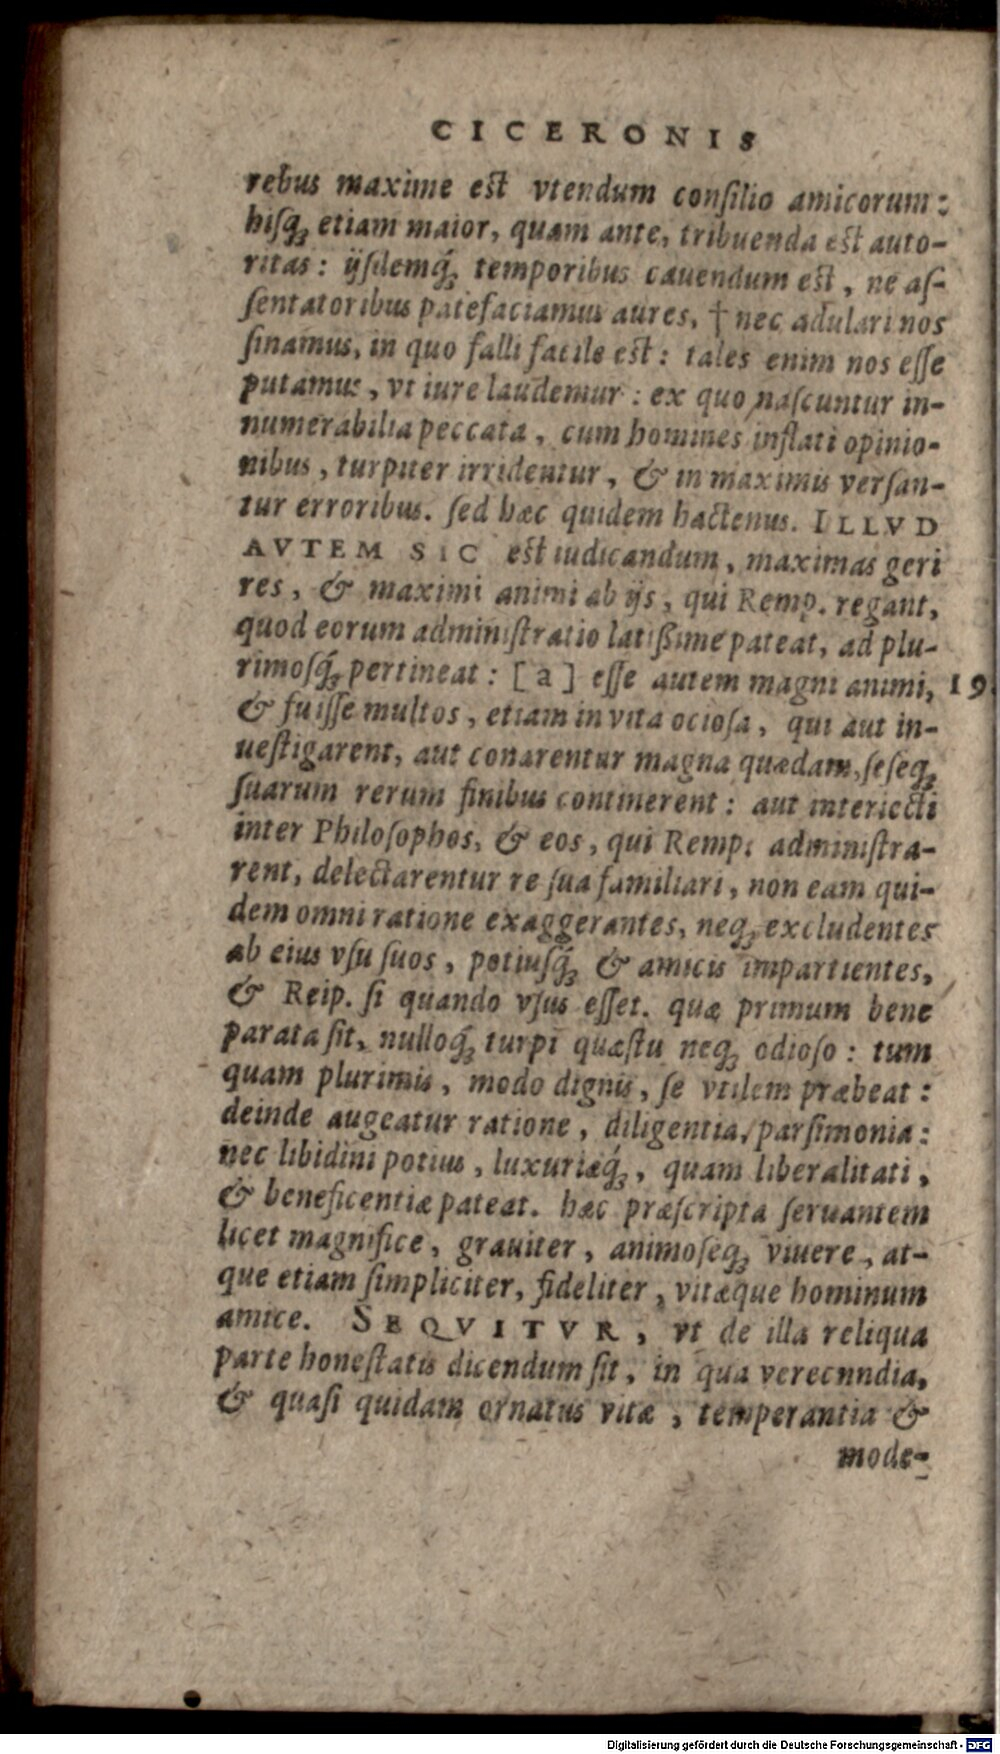 CICERONIS
rebus maxime est vtendum consilio amicorum:
hisq́; etiam maior, quam ante, tribuenda est auto-
ritas: ijsdemq́; temporibus cauendum est, ne as-
sentatoribus patefaciamus aures, † nec adulari nos
sinamus, in quo falli facile est: tales enim nos esse
putamus, vt iure laudemur: ex quo nascuntur in-
numerabilia peccata, cum homines inflati opinio-
nibus, turpiter irridentur, & in maximis versan-
tur erroribus. sed hæc quidem hactenus. ILLVD
AVTEM SIC est iudicandum, maximas geri
res, & maximi animi ab ijs, qui Remp. regant,
quod eorum administratio latißime pateat, ad plu-
rimosq́; pertineat: [a] esse autem magni animi, 19.
& fuisse multos, etiam in vita ociosa, qui aut in-
uestigarent, aut conarentur magna quædam, seseq;
suarum rerum finibus continerent: aut interiecti
inter Philosophos, & eos, qui Remp: administra-
rent, delectarentur re sua familiari, non eam qui-
dem omni ratione exaggerantes, neq; excludentes
ab eius vsu suos, potiusq́; & amicis impartientes,
& Reip. si quando vsus esset. quæ primum bene
parata sit, nulloq́; turpi quæstu neq; odioso: tum
quam plurimis, modo dignis, se vtilem præbeat:
deinde augeatur ratione, diligentia, parsimonia:
nec libidini potius, luxuriæq́;, quam liberalitati,
& beneficentiæ pateat. hæc præscripta seruantem
licet magnifice, grauiter, animoseq; viuere, at-
que etiam simpliciter, fideliter, vitæque hominum
amice. SEQVITVR, vt de illa reliqua
parte honestatis dicendum sit, in qua verecnndia,
& quasi quidam ornatus vitæ, temperantia &
mode-
Digitalisierung gefördert durch die Deutsche Forschungsgemeinschaft - DFG